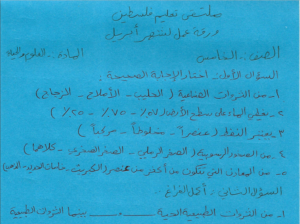 ملتقى تعليم فلسطين
ورقة عمل لمنتصف
الصف: السادس المادة: العلوم والحياة
السؤال الأول: اختار الإجابة الصحيحة:
١- من الثروات الصناعية ( الحليب - الأملاح - الزجاج )
٢- تغطي الماء على سطح الأرض ( - ٧٥٪ - ٢٥٪ )
٣- يعتبر النفط ( عنصراً - مخلوطاً - مركباً )
٤- من الصخور الرسوبية ( الصخر الرملي - الصخر الصفري - كلاهما )
٥- من المعادن التي تتكون من أكثر من عنصر ( الكبريت -
السؤال الثاني: أكمل الفراغ..
١- من الثروات الطبيعية الحية ـــــ و ـــــ بينما الثروات الطبيعية